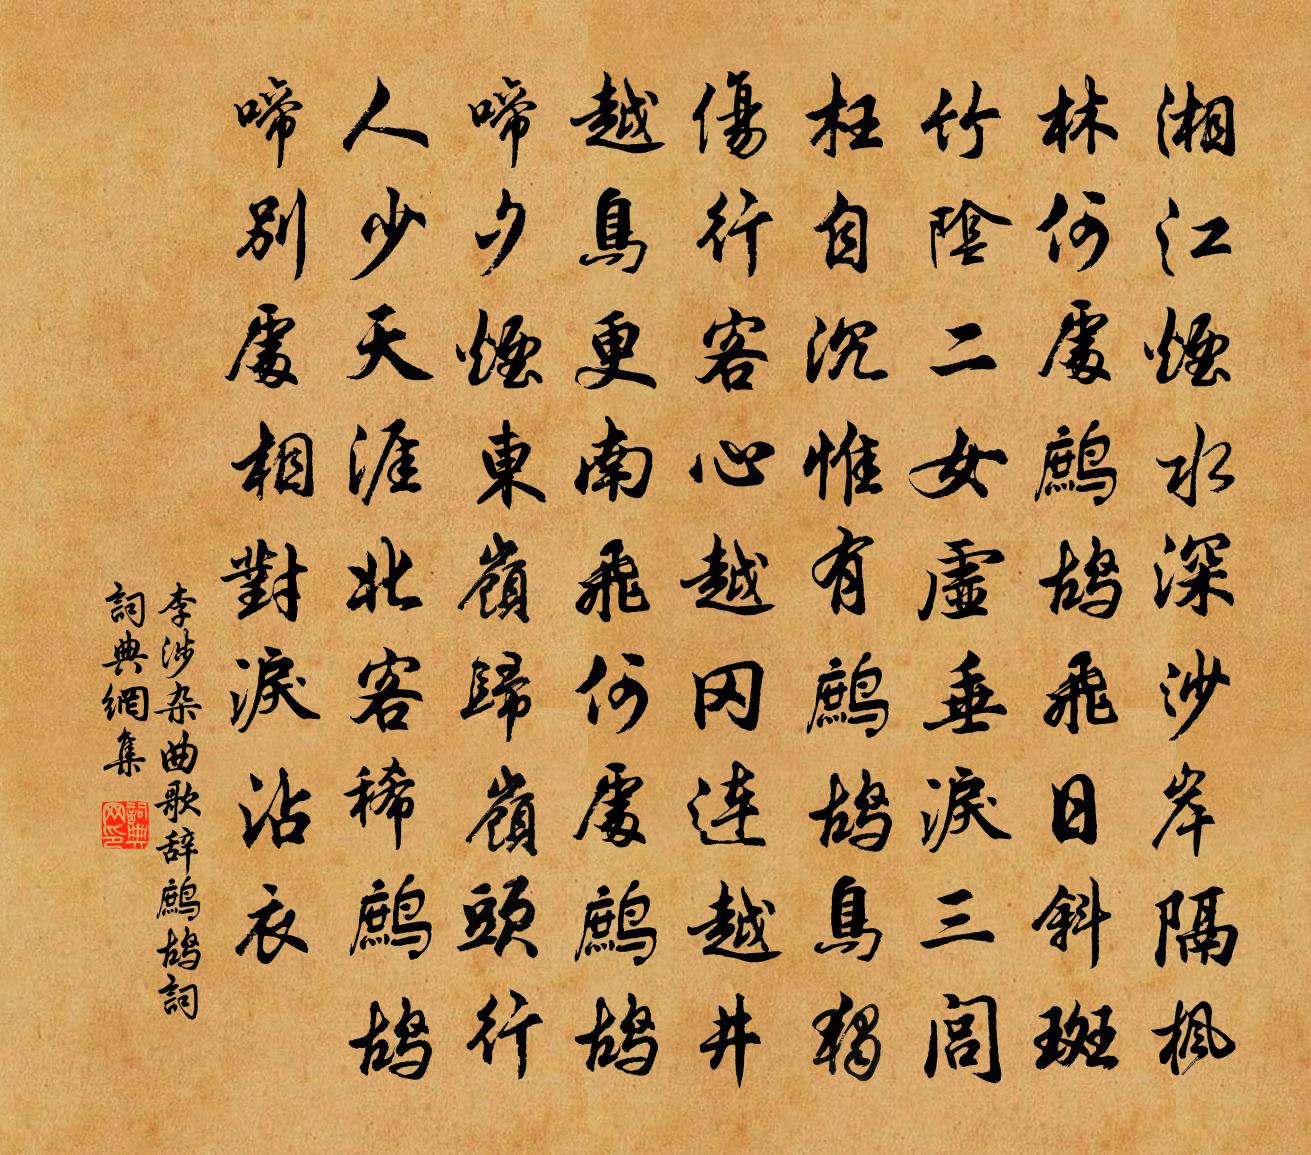 湘江煙水深沙岸隔楓
林何處鷓鴣飛日斜斑
竹陰二女虛垂淚三閭
枉自沉惟有鷓鴣鳥獨
傷行客心越冈連越井
越鳥更南飛何處鷓鴣
啼夕煙東嶺歸嶺頭行
人少天涯北客稀鷓鴣
啼別處相對淚沾衣
李涉杂曲歌辞鷓鴣詞
詞典網集
詞典网印